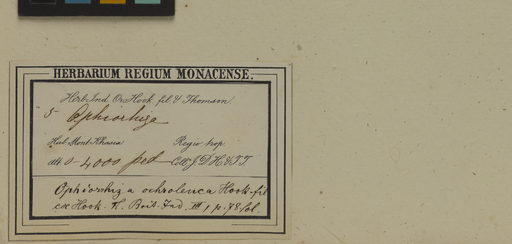 HERBARIUM REGIUM MONACENSE.
Herb. Ind. Or. Hook. fil. & Thomson.
5 Ophiorhiza
Hab. Mont. Khasia Regio trop.
alt. 0-4000 ped Coll. J. D. H. & T. T.
Ophiorrhiza ochroleuca Hook. fil
ex Hook. Fl. Brit. Ind. III, p. 78